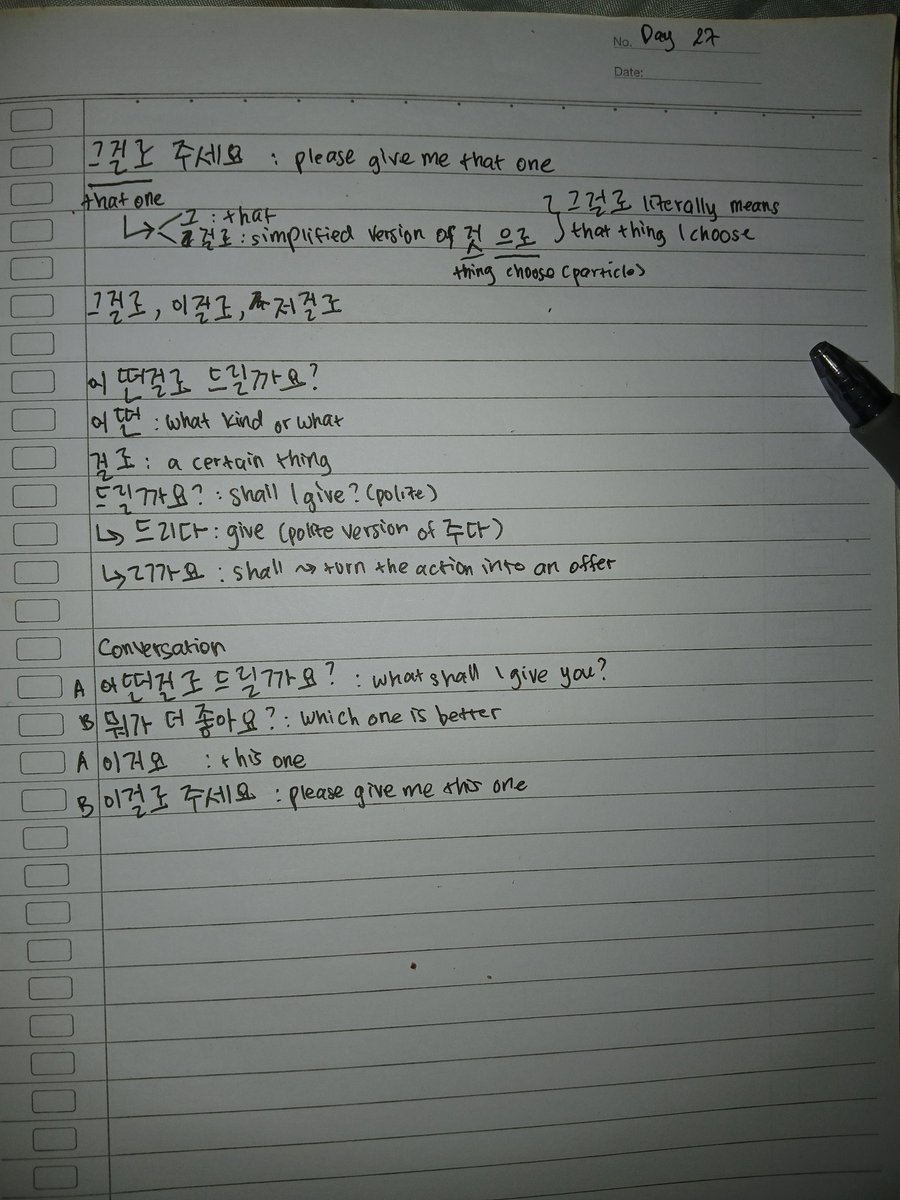 No. Day 27
Date:
그걸로 주세요 : please give me that one
that one
그 : that
걸로 : simplified version of 것 으로
thing choose (particle)
그걸로 literally means
that thing I choose
그걸로, 이걸로, 저걸로
어떤걸로 드릴까요?
어떤 : what kind or what
걸로 : a certain thing
드릴까요? : shall I give? (polite)
↳ 드리다 : give (polite version of 주다)
↳ ㄹ까요 : shall ⇝ turn the action into an offer
Conversation
A 어떤걸로 드릴까요? : what shall I give you?
B 뭐가 더 좋아요? : which one is better
A 이거요 : this one
B 이걸로 주세요 : please give me this one